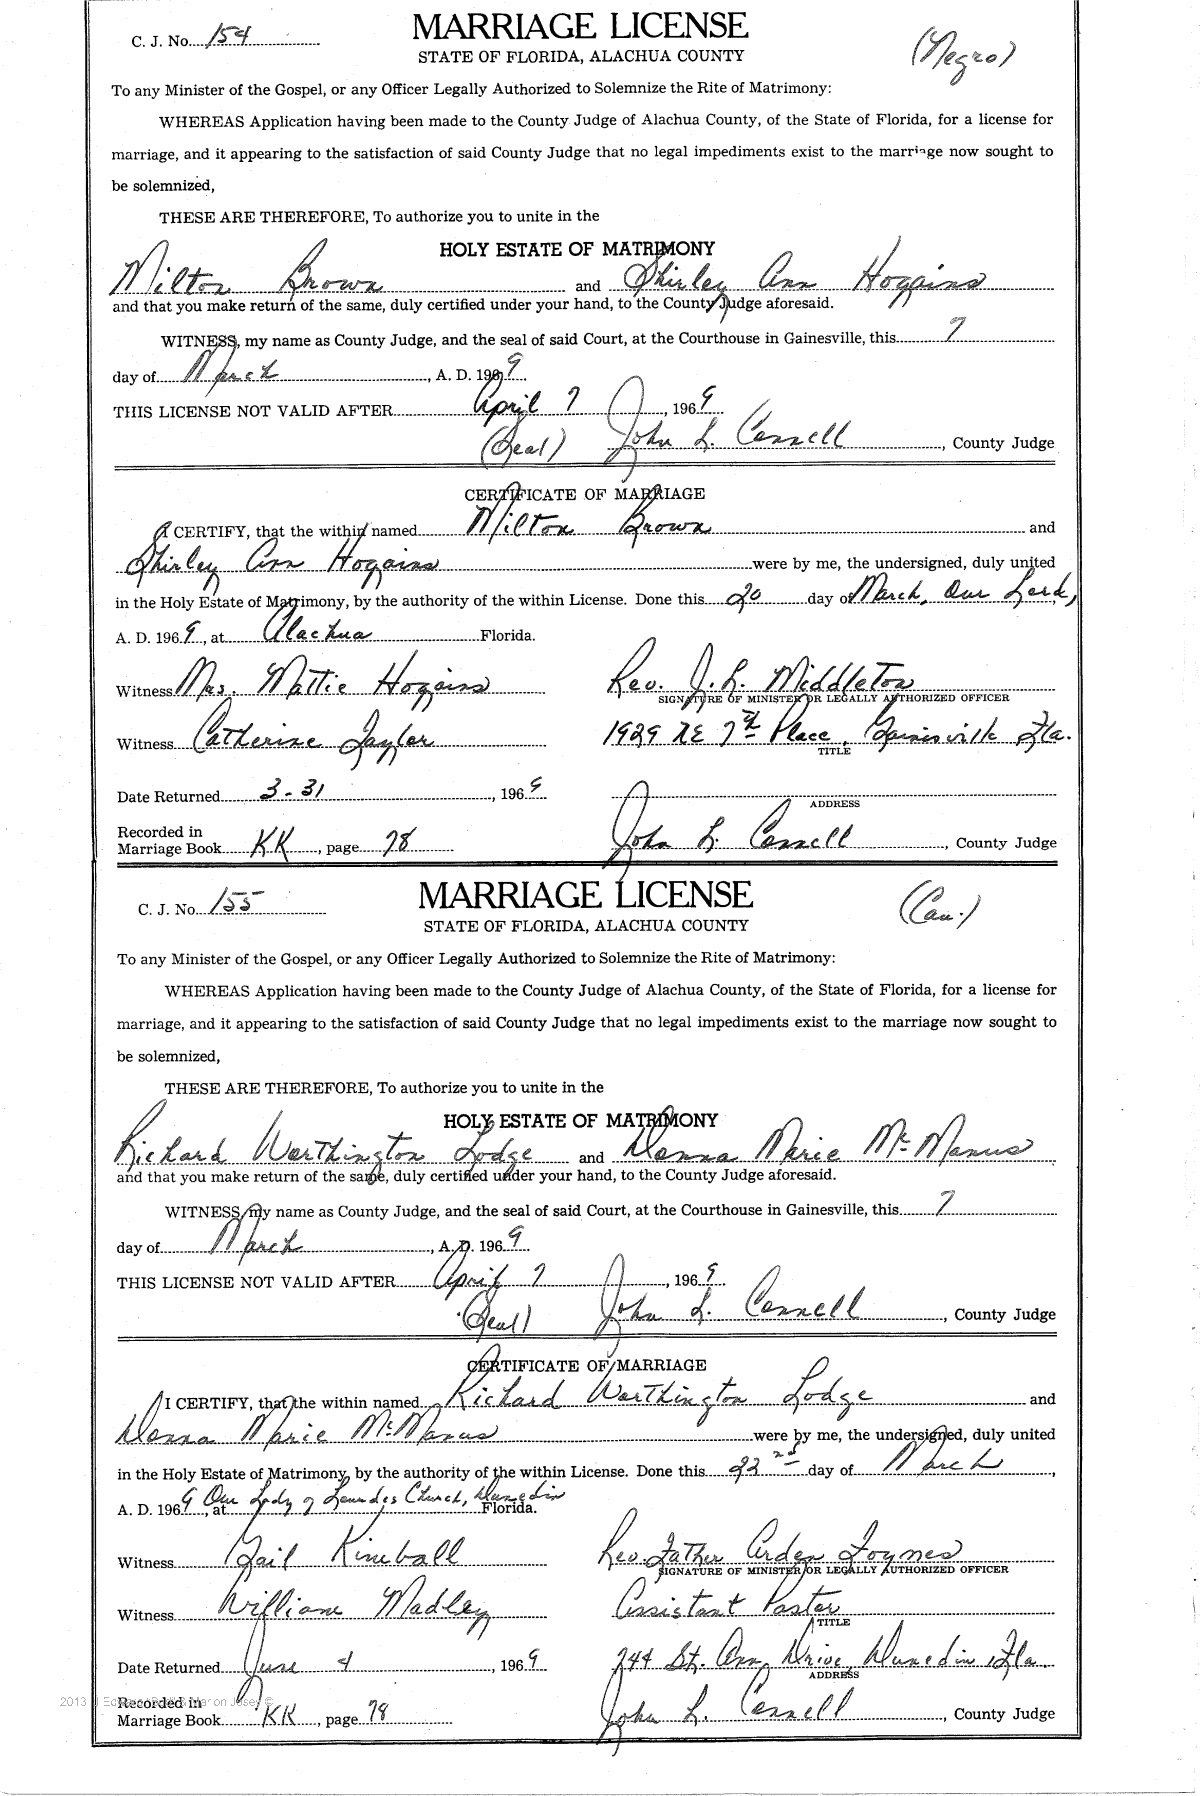 C. J. No. 154
MARRIAGE LICENSE
(Negro)
STATE OF FLORIDA, ALACHUA COUNTY
To any Minister of the Gospel, or any Officer Legally Authorized to Solemnize the Rite of Matrimony:
WHEREAS Application having been made to the County Judge of Alachua County, of the State of Florida, for a license for
marriage, and it appearing to the satisfaction of said County Judge that no legal impediments exist to the marriage now sought to
be solemnized,
THESE ARE THEREFORE, To authorize you to unite in the
HOLY ESTATE OF MATRIMONY
Milton Brown and Shirley Ann Hogains
and that you make return of the same, duly certified under your hand, to the County Judge aforesaid.
WITNESS, my name as County Judge, and the seal of said Court, at the Courthouse in Gainesville, this 7
day of March, A. D. 1969
THIS LICENSE NOT VALID AFTER April 7, 1969
(Seal) John L. Connell, County Judge
CERTIFICATE OF MARRIAGE
I CERTIFY, that the within named Milton Brown and
Shirley Ann Hogains were by me, the undersigned, duly united
in the Holy Estate of Matrimony, by the authority of the within License. Done this 20 day of March, Our Lord,
A. D. 1969, at Alachua Florida.
Witness Mrs. Mattie Hogains Rev. J. L. Middleton
SIGNATURE OF MINISTER OR LEGALLY AUTHORIZED OFFICER
Witness Catherine Taylor 1929 NE 7th Place, Gainisville Fla.
TITLE
Date Returned 3-31, 1969
ADDRESS
Recorded in
Marriage Book KK, page 78 John L. Connell, County Judge
C. J. No. 155
MARRIAGE LICENSE
(Cau.)
STATE OF FLORIDA, ALACHUA COUNTY
To any Minister of the Gospel, or any Officer Legally Authorized to Solemnize the Rite of Matrimony:
WHEREAS Application having been made to the County Judge of Alachua County, of the State of Florida, for a license for
marriage, and it appearing to the satisfaction of said County Judge that no legal impediments exist to the marriage now sought to
be solemnized,
THESE ARE THEREFORE, To authorize you to unite in the
HOLY ESTATE OF MATRIMONY
Richard Worthington Lodge and Donna Marie McManus
and that you make return of the same, duly certified under your hand, to the County Judge aforesaid.
WITNESS, my name as County Judge, and the seal of said Court, at the Courthouse in Gainesville, this 7
day of March, A. D. 1969
THIS LICENSE NOT VALID AFTER April 7, 1969
(Seal) John L. Connell, County Judge
CERTIFICATE OF MARRIAGE
I CERTIFY, that the within named Richard Worthington Lodge and
Donna Marie McManus were by me, the undersigned, duly united
in the Holy Estate of Matrimony, by the authority of the within License. Done this 22nd day of March,
A. D. 1969, at Our Lady of Lourdes Church, Dunedin Florida.
Witness Gail Kimball Rev. Father Arden Foynes
SIGNATURE OF MINISTER OR LEGALLY AUTHORIZED OFFICER
Witness William Madley Assistant Pastor
TITLE
Date Returned June 4, 1969 744 St. Ann Drive, Dunedin, Fla.
ADDRESS
Recorded in
Marriage Book KK, page 78 John L. Connell, County Judge